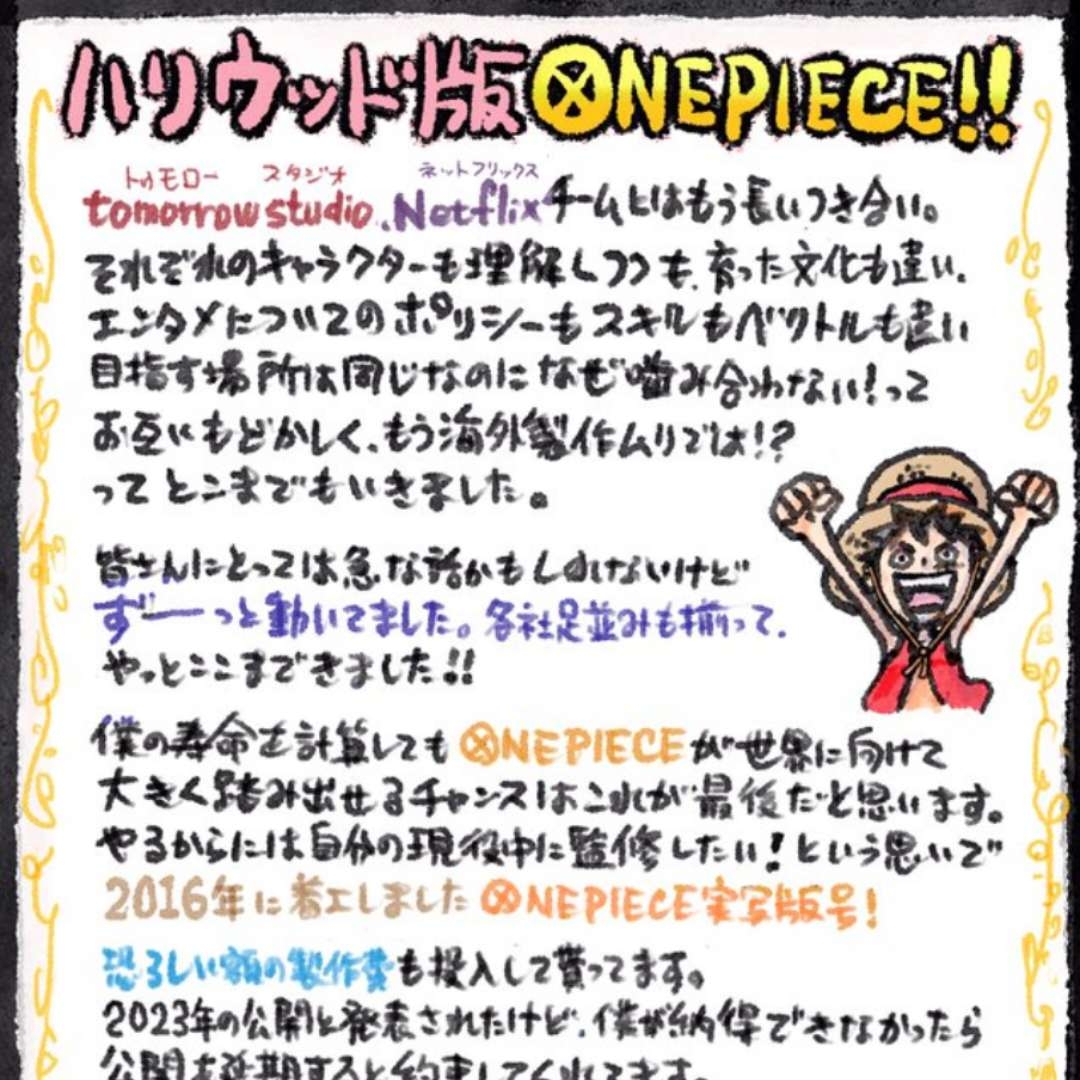 ハリウッド版ONEPIECE!!
トゥモロー スタジオ ネットフリックス
tomorrow studio、Netflixチームとはもう長いつき合い。
それぞれのキャラクターも理解しつつも、育った文化も違い、
エンタメについてのポリシーもスキルもベクトルも違い
目指す場所は同じなのになぜ噛み合わない!って
お互いもどかしく、もう海外製作ムリでは!?
ってとこまでもいきました。
皆さんにとっては急な話かもしれないけど
ずーーっと動いてました。各社足並みも揃って、
やっとここまできました!!
僕の寿命を計算してもONEPIECEが世界に向けて
大きく踏み出せるチャンスはこれが最後だと思います。
やるからには自分の現役中に監修したい!という思いで
2016年に着工しました ONEPIECE実写版号!
恐ろしい額の製作費も投入して貰ってます。
2023年の公開と発表されたけど、僕が納得できなかったら
公開を延期すると約束してくれてます。